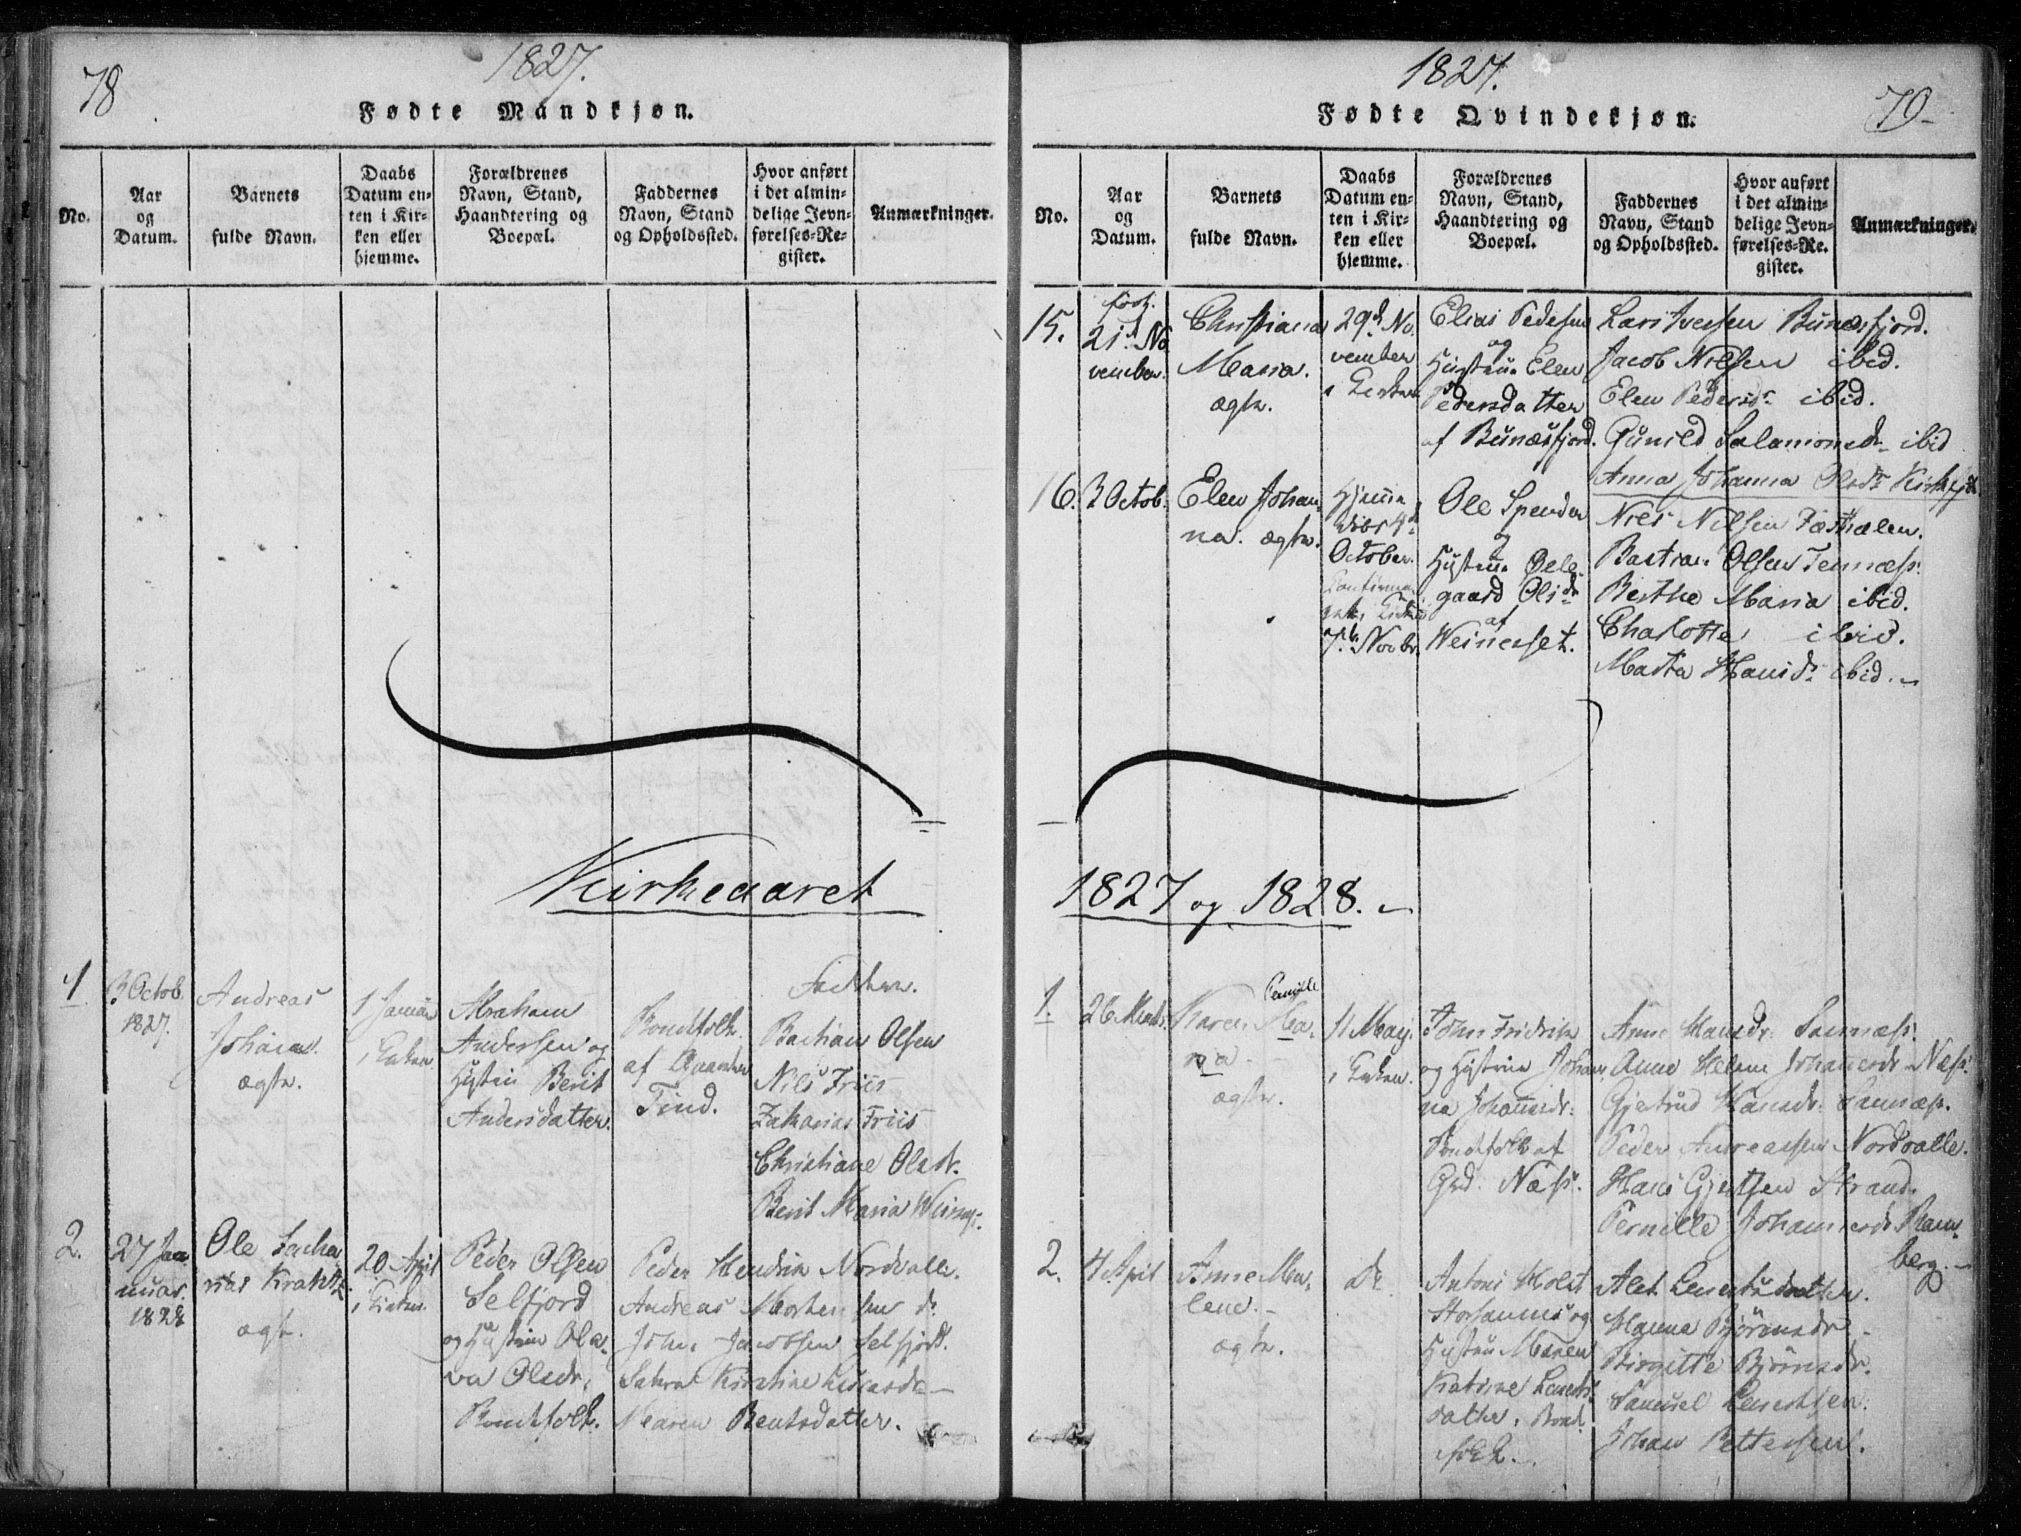 78
1827.
Fødte Mandkjøn.
No.
Aar
og
Datum.
Barnets
fulde Navn.
Daabs
Datum en-
ten i Kir-
ken eller
hjemme.
Forældrenes
Navn, Stand,
Haandtering og
Boepæl.
Faddernes
Navn, Stand
og Opholdssted.
Hvor anført
i det almin-
delige Jevn-
førelses-Re-
gister.
Anmærkninger.
Kirkeaaret
1.
3 Octob.
1827.
Andreas
Johan
ægte.
1 Januar
i Kirken
Abraham
Anderssen og
Hustru Berit
Andersdatter.
Bondefolk
af
Tind.
Faddere.
Bastian Olsen
Niels Friis
Zakarias Friis
Christiane Olsdr.
Berit Maria
2.
27 Jan
nuar.
1828
Ole Zacha
rias
ægte.
20 April
i Kirken
Peder Olsen
Selfjord
og Hustru Ola
va Olsdr.
Bondefolk.
Peder Hendrik Nordvalle.
Andreas
Johan Jacobsen Selfjord.
Maren Bentsdatter.
1827.
79
Fødte Qvindekjøn.
No.
Aar
og
Datum.
Barnets
fulde Navn.
Daabs
Datum en-
ten i Kir-
ken eller
hjemme.
Forældrenes
Navn, Stand,
Haandtering og
Boepæl.
Faddernes
Navn, Stand
og Opholdssted.
Hvor anført
i det almin-
delige Jevn-
førelses-Re-
gister.
Anmærkninger.
15.
født
21d No
vember.
Christiana
Maria.
ægte.
29d No
vember
i Kirken
Elias Pedersen
og
Hustrue Elen
Pedersdatter
af Bunæsfjord.
Lars Iversen Bunæsfjord.
Jacob Nielsen ibid.
Elen Pedersdr ibid.
Gunild Salamonsdr ibid
Anna Johanna Olsdr
16.
3 Octob.
Elen Johan
na. ægte.
Hjemme
døbt 4d
October.
7de Novbr.
Ole Spender
og
Hustrue Øllegaard
Olsdr
af
Weinerset.
Niels Nilsen
Bastian Olsen Tennæss.
Berthe Maria ibid.
Charlotte ibid.
Marta Hansdr ibid.
1827 og 1828.
1.
26 Marts
Karen Pernille Ma
ria
ægte.
11 May
i Kirken.
John Fridrik
og Hustrue Johan
na Johannesdr.
Bondefolk af
Grd. Næss.
Anne Hansdr. Sannæss.
Anne Helene Johannesdr Næss.
Gjertrud Hansdr. Sannæss.
Peder Andreassen Nordvalle.
Hans Gjertsen Strand.
Pernille Johannesdr Ram
berg.
2.
4 April
Anne
lene.
ægte.
Do
Antoni Holst
og
Hustrue Maren
Katrine
datter. Bond
folk.
Hanna Bjørnsdr
Birgitte Bjørnsdr.
Samuel
Johan Pettersen.